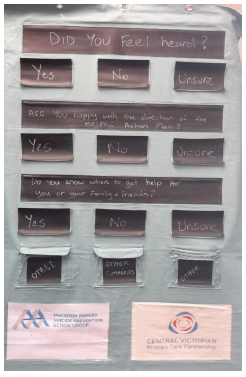 DID YOU Feel heard?
Yes No Unsure
ARE You happy with the direction of the
MRSPAG Action Plan?
Yes No Unsure
Do you know where to get help for
you or your Family + Friends?
Yes No Unsure
OTHER OTHER COMMENTS OTHER
MACEDON RANGES
SUICIDE PREVENTION
ACTION GROUP
CENTRAL VICTORIAN
Primary Care Partnership